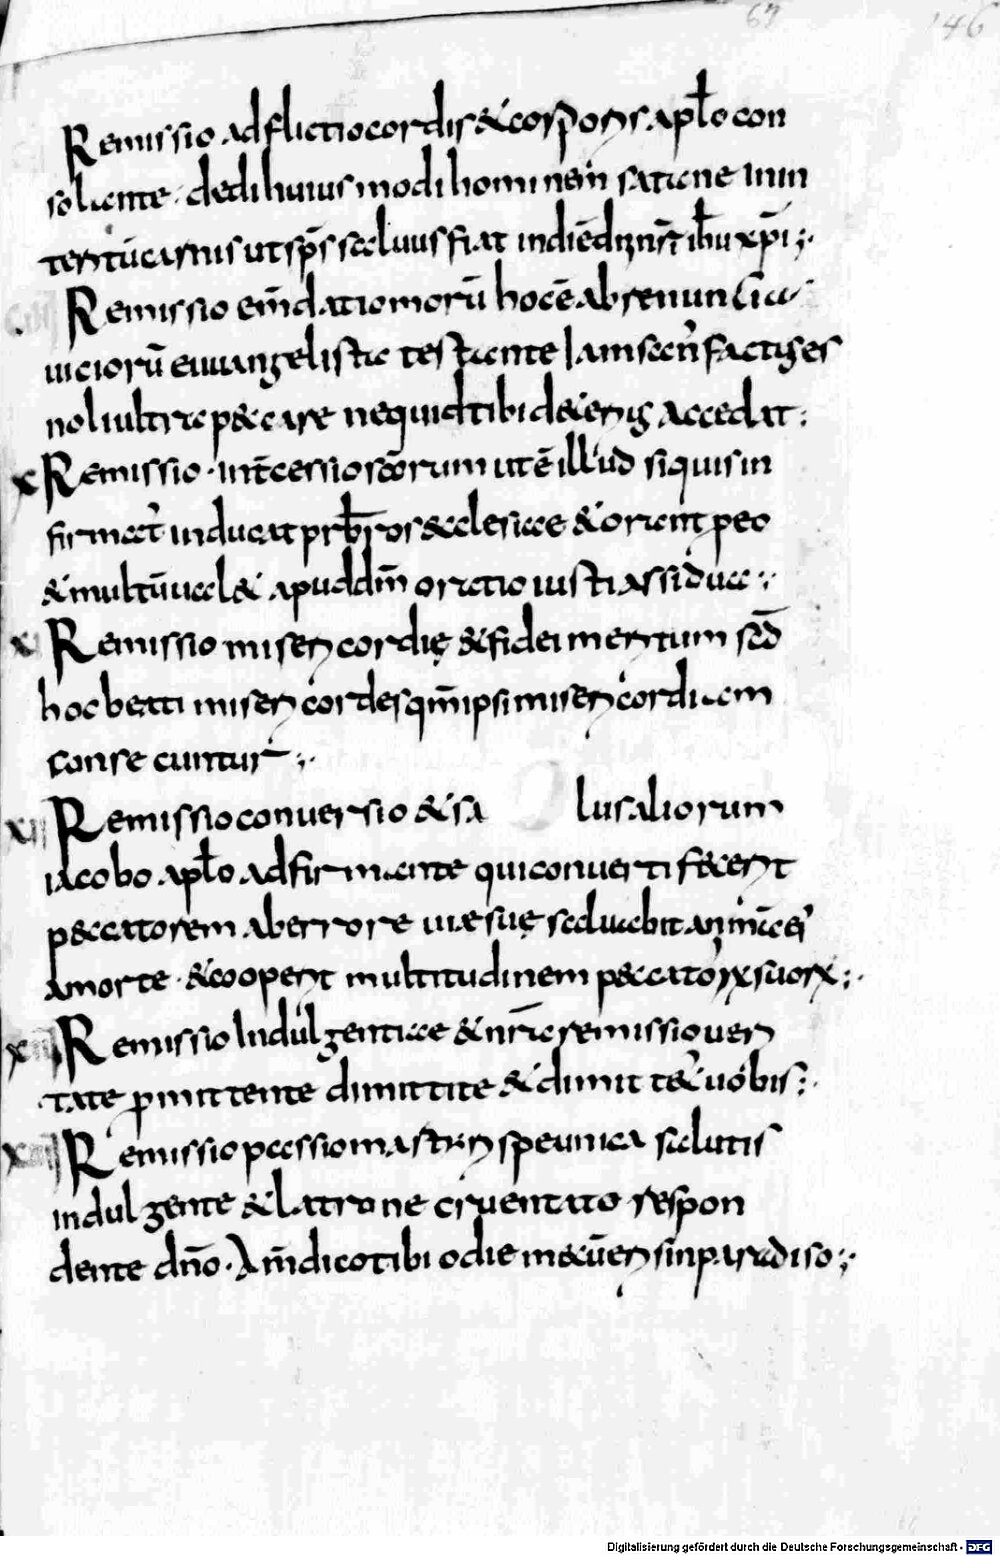 67 146
Remissio adflictio cordis & corporis. apło con
solante. dedi huiusmodi hominem satane inin
teritū carnis ut sp̄s saluus fiat in diē dn̄i nr̄i ihū xp̄i;
Remissio em̄datio morū hoc ē abrenuntia
uiciorū euuangelista testante Iam sanꝰ factus es
noli ultra peccare ne quid tibi deterius accedat:
x Remissio. int̄cessio sc̄orum ut ē illud siquis in
firmat̉ inducat prb̄ros æclesiae & orient p eo
& multū ualet apud dm̄ oratio iusti assidua:
xi Remissio misericordię & fidei meritum sed̄
hoc beati misericordes qm̄ ipsi misericordiam
consecuntur;
xii Remissio conuersio & sa lus aliorum
iacobo apło adfirmante qui conuerti fecerit
peccatorem ab errore uiæ suę saluabit animā eiꝰ
a morte. & cooperit multitudinem peccatoꝝ suoꝝ;
Remissio Indulgentiae & nr̄a remissio ueri
tate p̄mittente dimittite & dimittet̉ uobis:
Remissio passio nostri spe unica salutis
indulgente & latrone cruentato respon
dente dn̄o. Am̄ dico tibi odie mecū eris in paradiso;
Digitalisierung gefördert durch die Deutsche Forschungsgemeinschaft - DFG